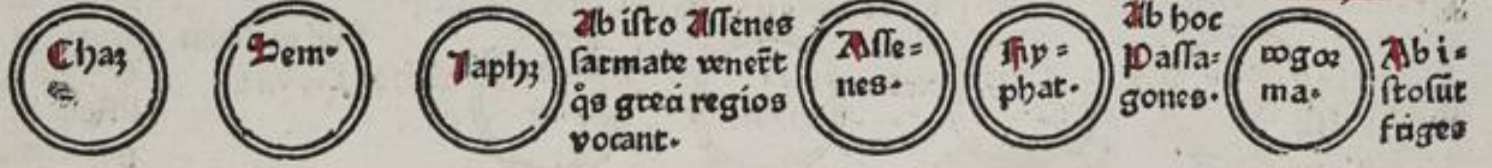 Chaꝫ
Sem·
Japhꝫ
Ab isto Assenes
sarmate venerūt
q̊s greci regios
vocant·
Asse=
nes·
Ry=
phat·
Ab hoc
Passa=
gones·
ma·
Ab i=
sto sūt
friges